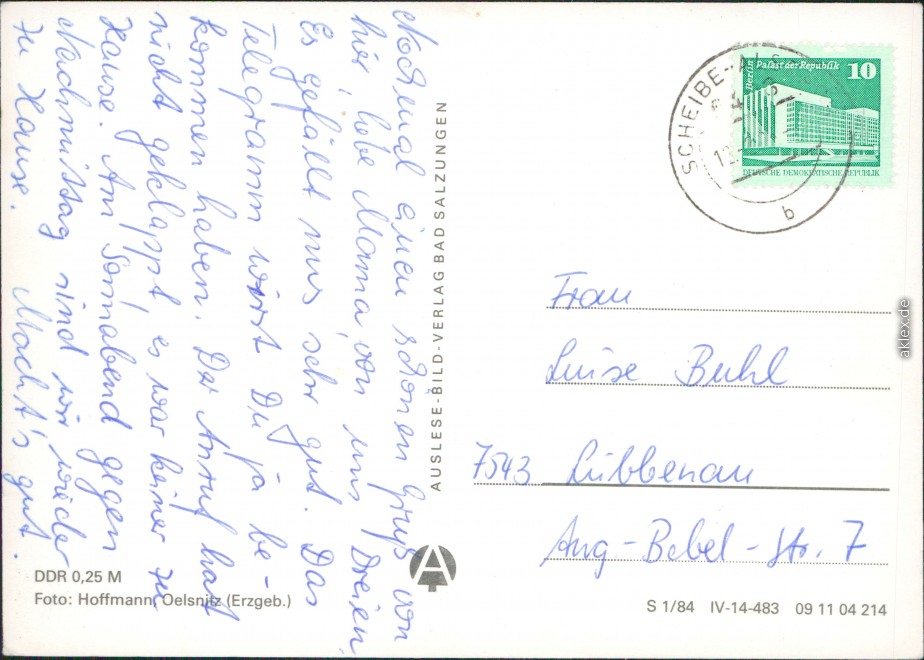 Nochmal einen schönen Gruß von
hier, liebe Mama, von uns Dreien.
Es gefällt uns sehr gut. Das
Telegramm wirst Du ja be-
kommen haben. Der Anruf hat
nicht geklappt, es war keiner zu
Hause. Am Sonnabend gegen
Nachmittag sind wir wieder
zu Hause. Macht's gut.
AUSLESE-BILD-VERLAG BAD SALZUNGEN
DDR 0,25 M
Foto: Hoffmann, Oelsnitz (Erzgeb.)
SCHEIBE-ALS
b
Berlin Palast der Republik 10
DEUTSCHE DEMOKRATISCHE REPUBLIK
Frau
Luise Buhl
7543 Lübbenau
Aug-Bebel-Str. 7
S 1/84 IV-14-483 09 11 04 214
aklex.de